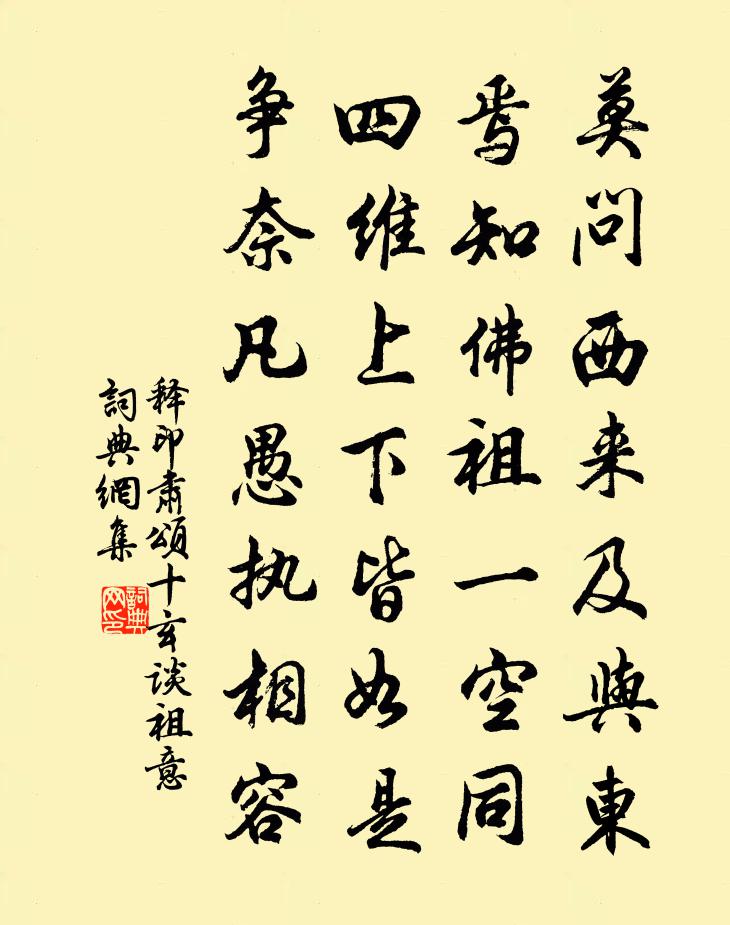 莫问西来及與東
焉知佛祖一空同
四维上下皆如是
争奈凡愚执相容
释印肃頌十玄谈祖意
詞典網集
詞典网印